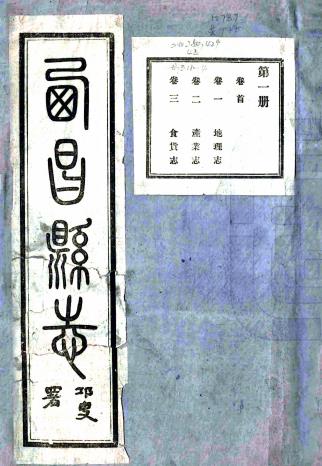 第一册
卷首
卷一 地理志
卷二 產業志
卷三 食貨志
西昌縣志
邛叟
署